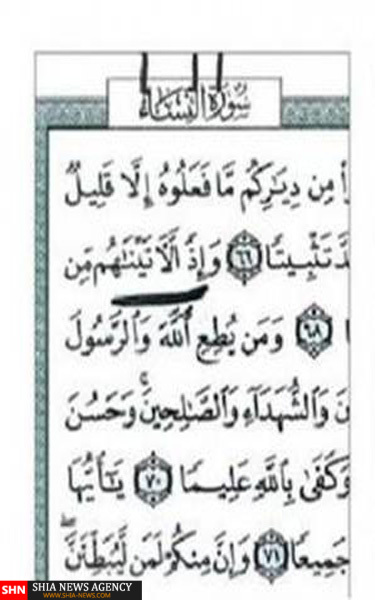 سُورَةُ النِّسَاءِ
اْ مِن دِيَٰرِكُم مَّا فَعَلُوهُ إِلَّا قَلِيلٌ
دَّ تَثْبِيتًا ٦٦ وَإِذَ الَّأَتَيْنَٰهُم مِّن
ا ٦٨ وَمَن يُطِعِ ٱللَّهَ وَٱلرَّسُولَ
نَ وَٱلشُّهَدَآءِ وَٱلصَّٰلِحِينَۚ وَحَسُنَ
وَكَفَىٰ بِٱللَّهِ عَلِيمًا ٧٠ يَٰٓأَيُّهَا
جَمِيعًا ٧١ وَإِنَّ مِنكُمْ لَمَن لَّيُبَطِّئَنَّ
SHN SHIA NEWS AGENCY
WWW.SHIA-NEWS.COM